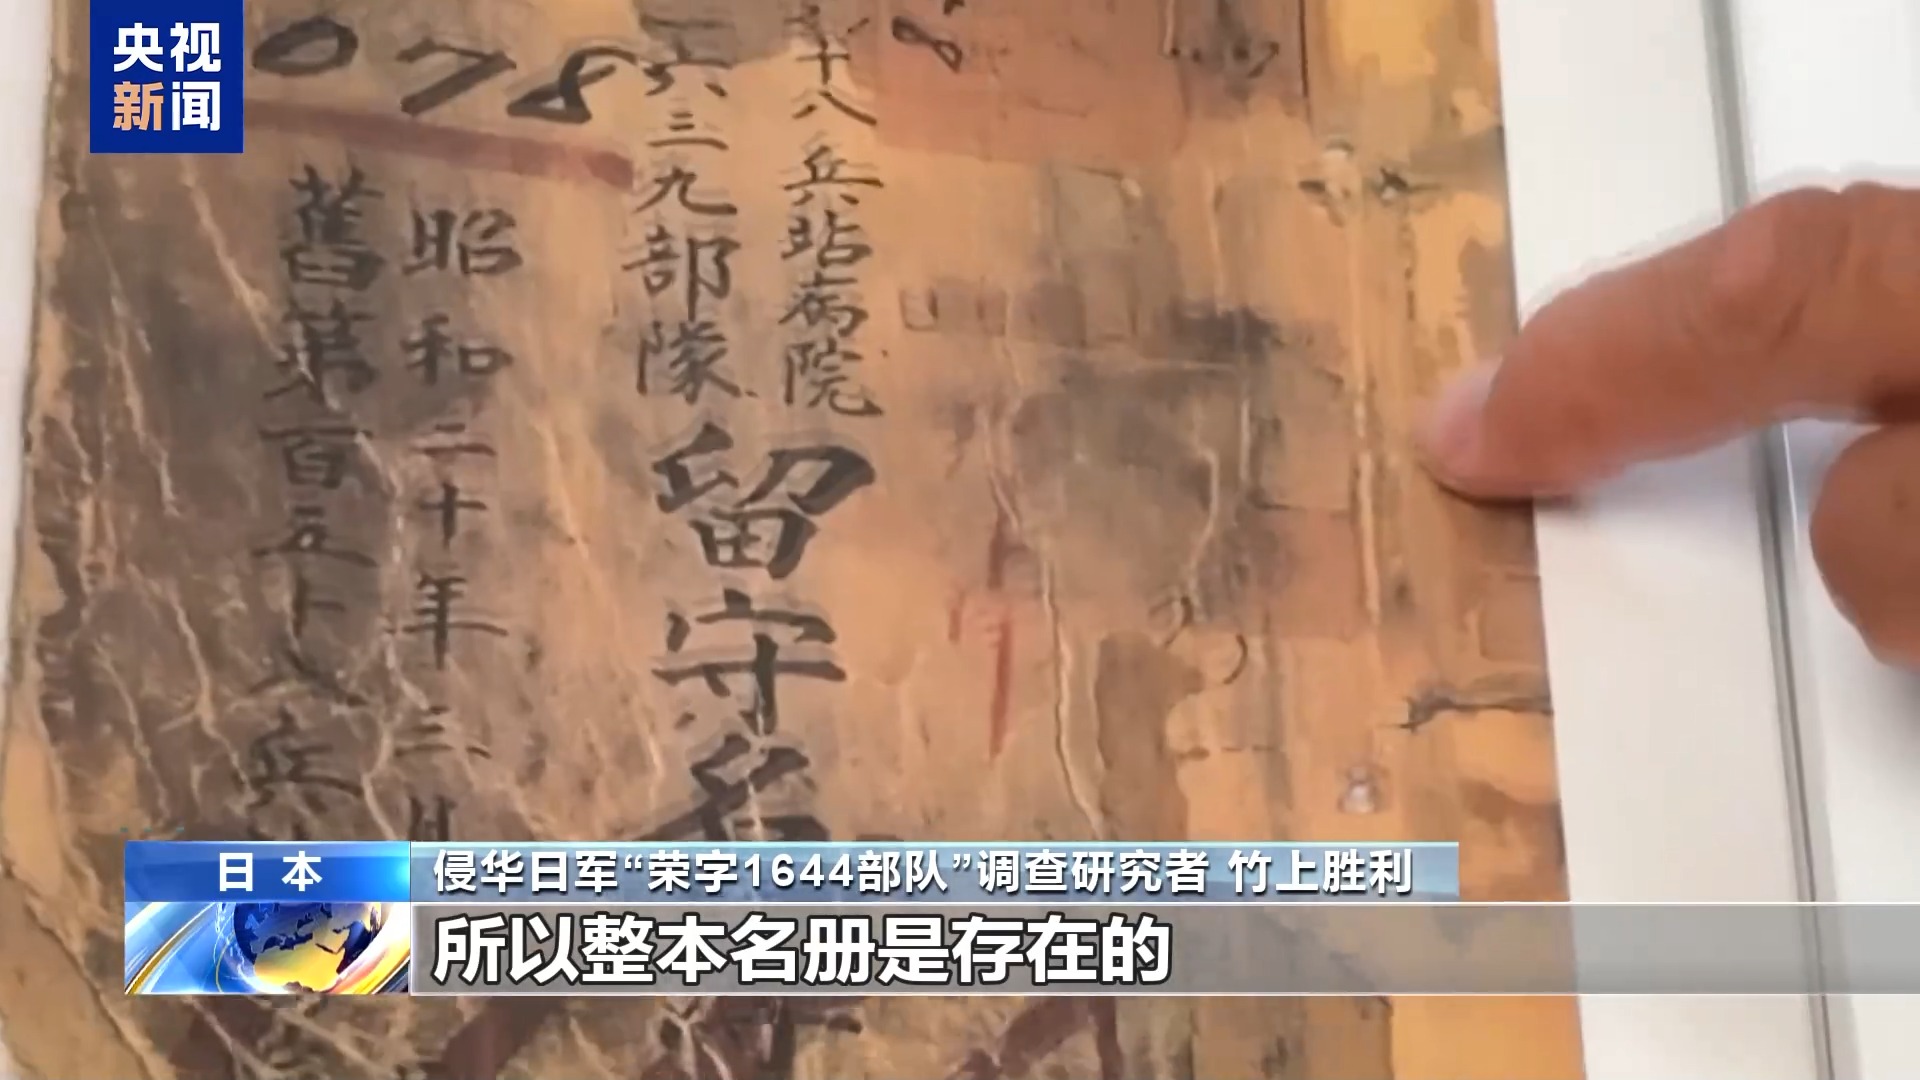 央视
新闻
078
十八兵站病院
一六三九部隊
留守名
昭和二十年三月
舊第百五十八兵
日本
侵华日军“荣字1644部队”调查研究者 竹上胜利
所以整本名册是存在的